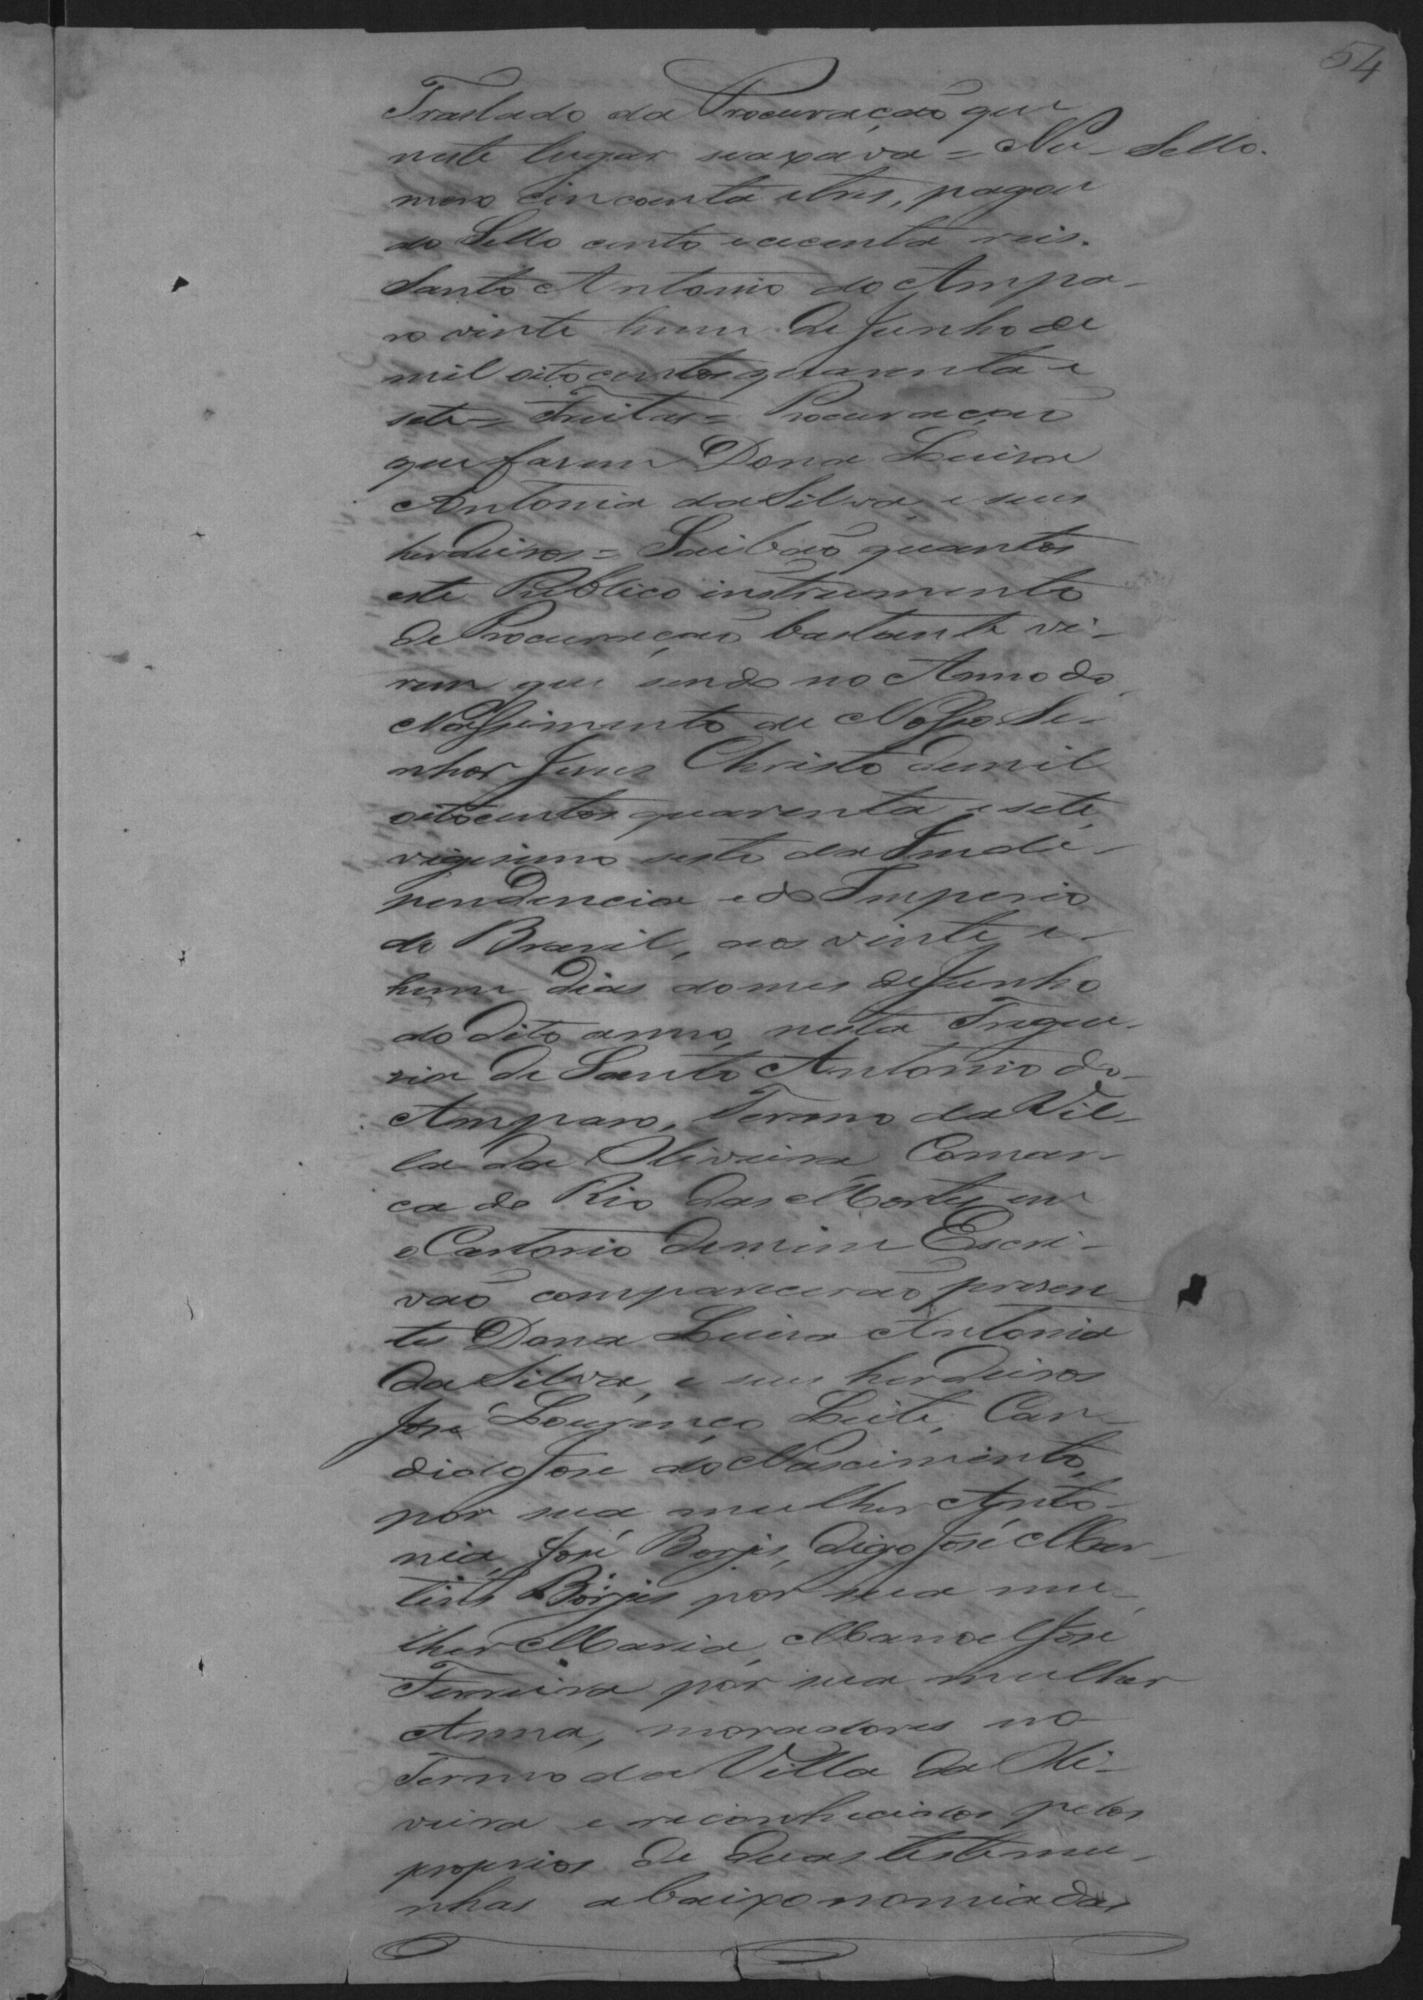 54
Traslado da Procuração que
neste lugar seaxava = Nu- Sello.
mero cincoenta etres, pagou
do Sello cento e cecenta reis.
Santo Antonio do Ampa-
ro vinte hum de Junho de
mil oitocentos quarenta e
sete = Freitas = Procuração
que fasem Dona Luisa
Antonia da Silva, e seus
herdeiros = Saibão quantos
este Publico instrumento
de Procuração bastante vi-
rem que sendo no Anno do
Nassimento de Nosso Se-
nhor Jesus Christo demil
oitocentos quarenta e sete,
vigesimo sesto da Inde-
pendencia e do Imperio
do Brasil, aos vinte e
hum dias domes deJunho
do dito anno, nesta Fregue-
sia de Santo Antonio do
Amparo, Termo da Vil-
la da Oliveira, Comar-
ca do Rio das Mortes em
o Cartorio demim Escri-
vão comparecerão presen-
tes Dona Luisa Antonia
da Silva, e seus herdeiros
Jose Lourenço Leite, Can-
dido Jose do Nascimento,
por sua mulher Anto-
nia, José Borges, digo José Mar-
tins Borges por sua mu-
lher Maria, Manoel Jose
Ferreira por sua mulher
Anna, moradores no
Termo da Villa da Oli-
veira e reconhecidos pelos
proprios de duas testemu-
nhas abaixo nomiadas